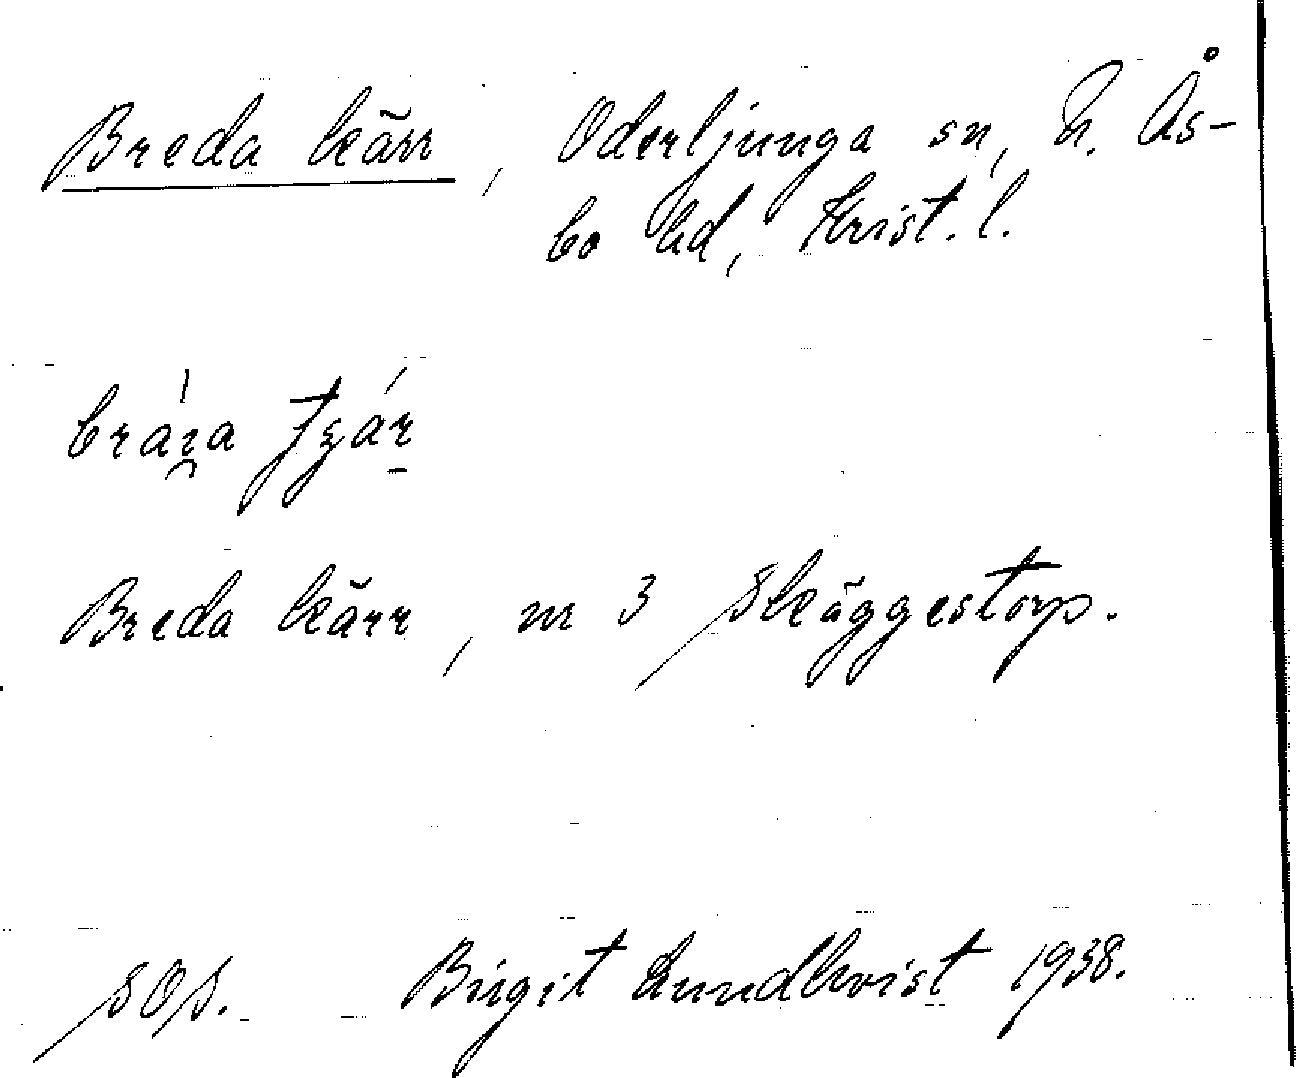 Breda kärr, Oderljunga sn, N. Ås-
bo hd, Krist. l.
Breda kärr, m 3 Skäggestorp.
SOS. Birgit Lundkvist 1938.